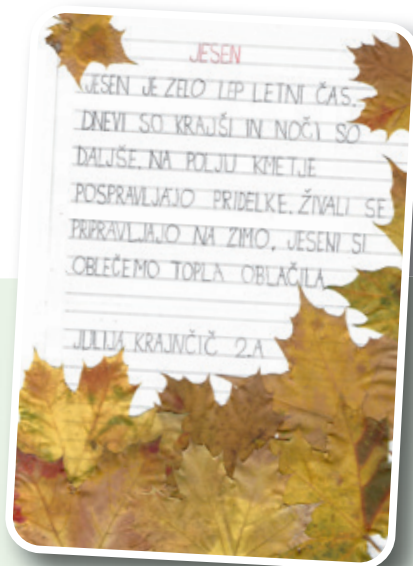 JESEN
JESEN JE ZELO LEP LETNI ČAS.
DNEVI SO KRAJŠI IN NOČI SO
DALJŠE. NA POLJU KMETJE
POSPRAVLJAJO PRIDELKE. ŽIVALI SE
PRIPRAVLJAJO NA ZIMO. JESENI SI
OBLEČEMO TOPLA OBLAČILA.
JULIJA KRAJNČIČ 2.A